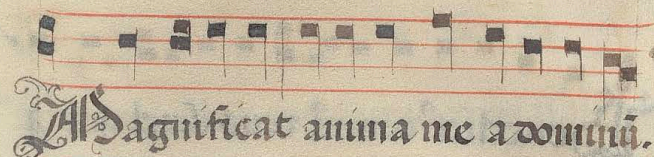 Magnificat anima me a dominū.